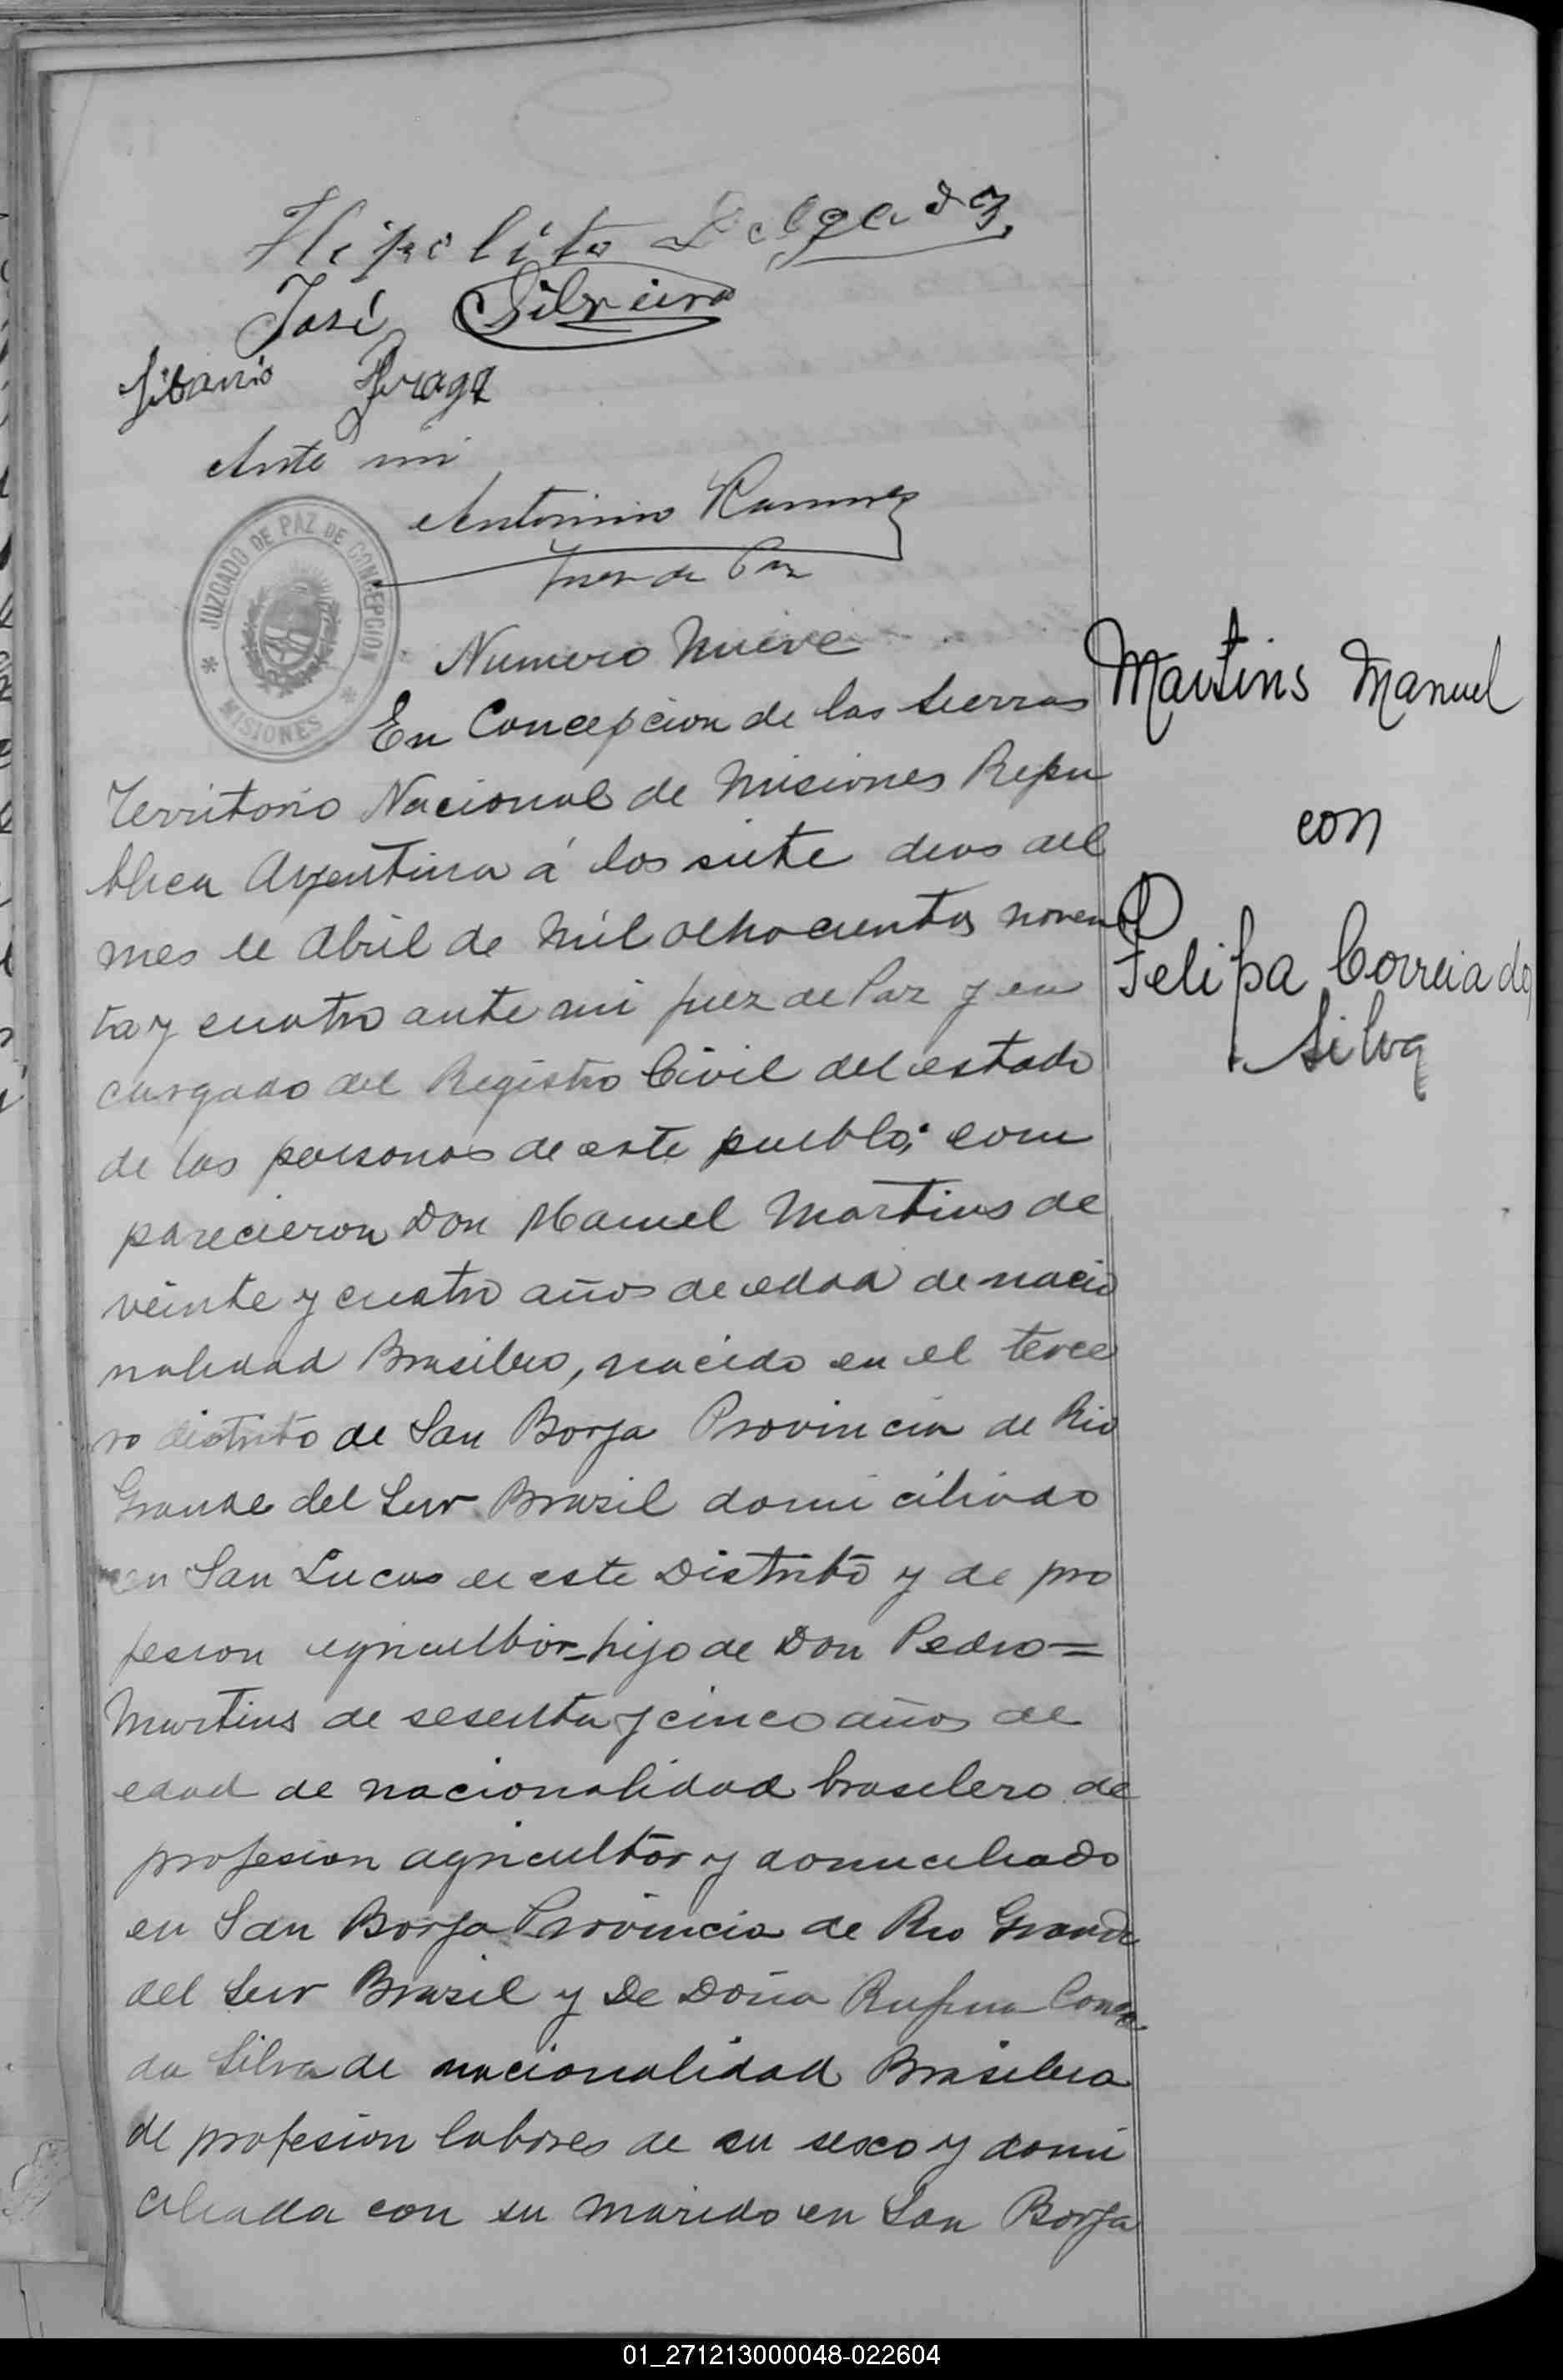 Hipolito Delgado
José Silveira
Libanio Braga
Ante mi
Antonino Ramirez
Juez de Paz
JUZGADO DE PAZ DE CONCEPCION
* MISIONES *
Numero Nueve
En Concepcion de las Sierras
Territorio Nacional de Misiones Repu
blica Argentina á los siete dias del
mes de Abril de Mil ochocientos noven
ta y cuatro ante mi juez de Paz y en
cargado del Registro Civil del estado
de las personas de este pueblo; com
parecieron Don Manuel Martins de
veinte y cuatro años de edad de nacio
nalidad Brasilero, nacido en el terce
ro distrito de San Borja Provincia de Rio
Grande del Sur Brazil domiciliado
en San Lucas de este Distrito y de pro
fesion agricultor - hijo de Don Pedro =
Martins de sesenta y cinco años de
edad de nacionalidad brasilero de
profesion agricultor y domiciliado
en San Borja Provincia de Rio Grande
del Sur Brazil y De Doña Rufina
da Silva de nacionalidad Brasilera
de profesion labores de su sexo y domi
ciliada con su marido en San Borja
Martins Manuel
con
Felipa Correia da
Silva
01_271213000048-022604